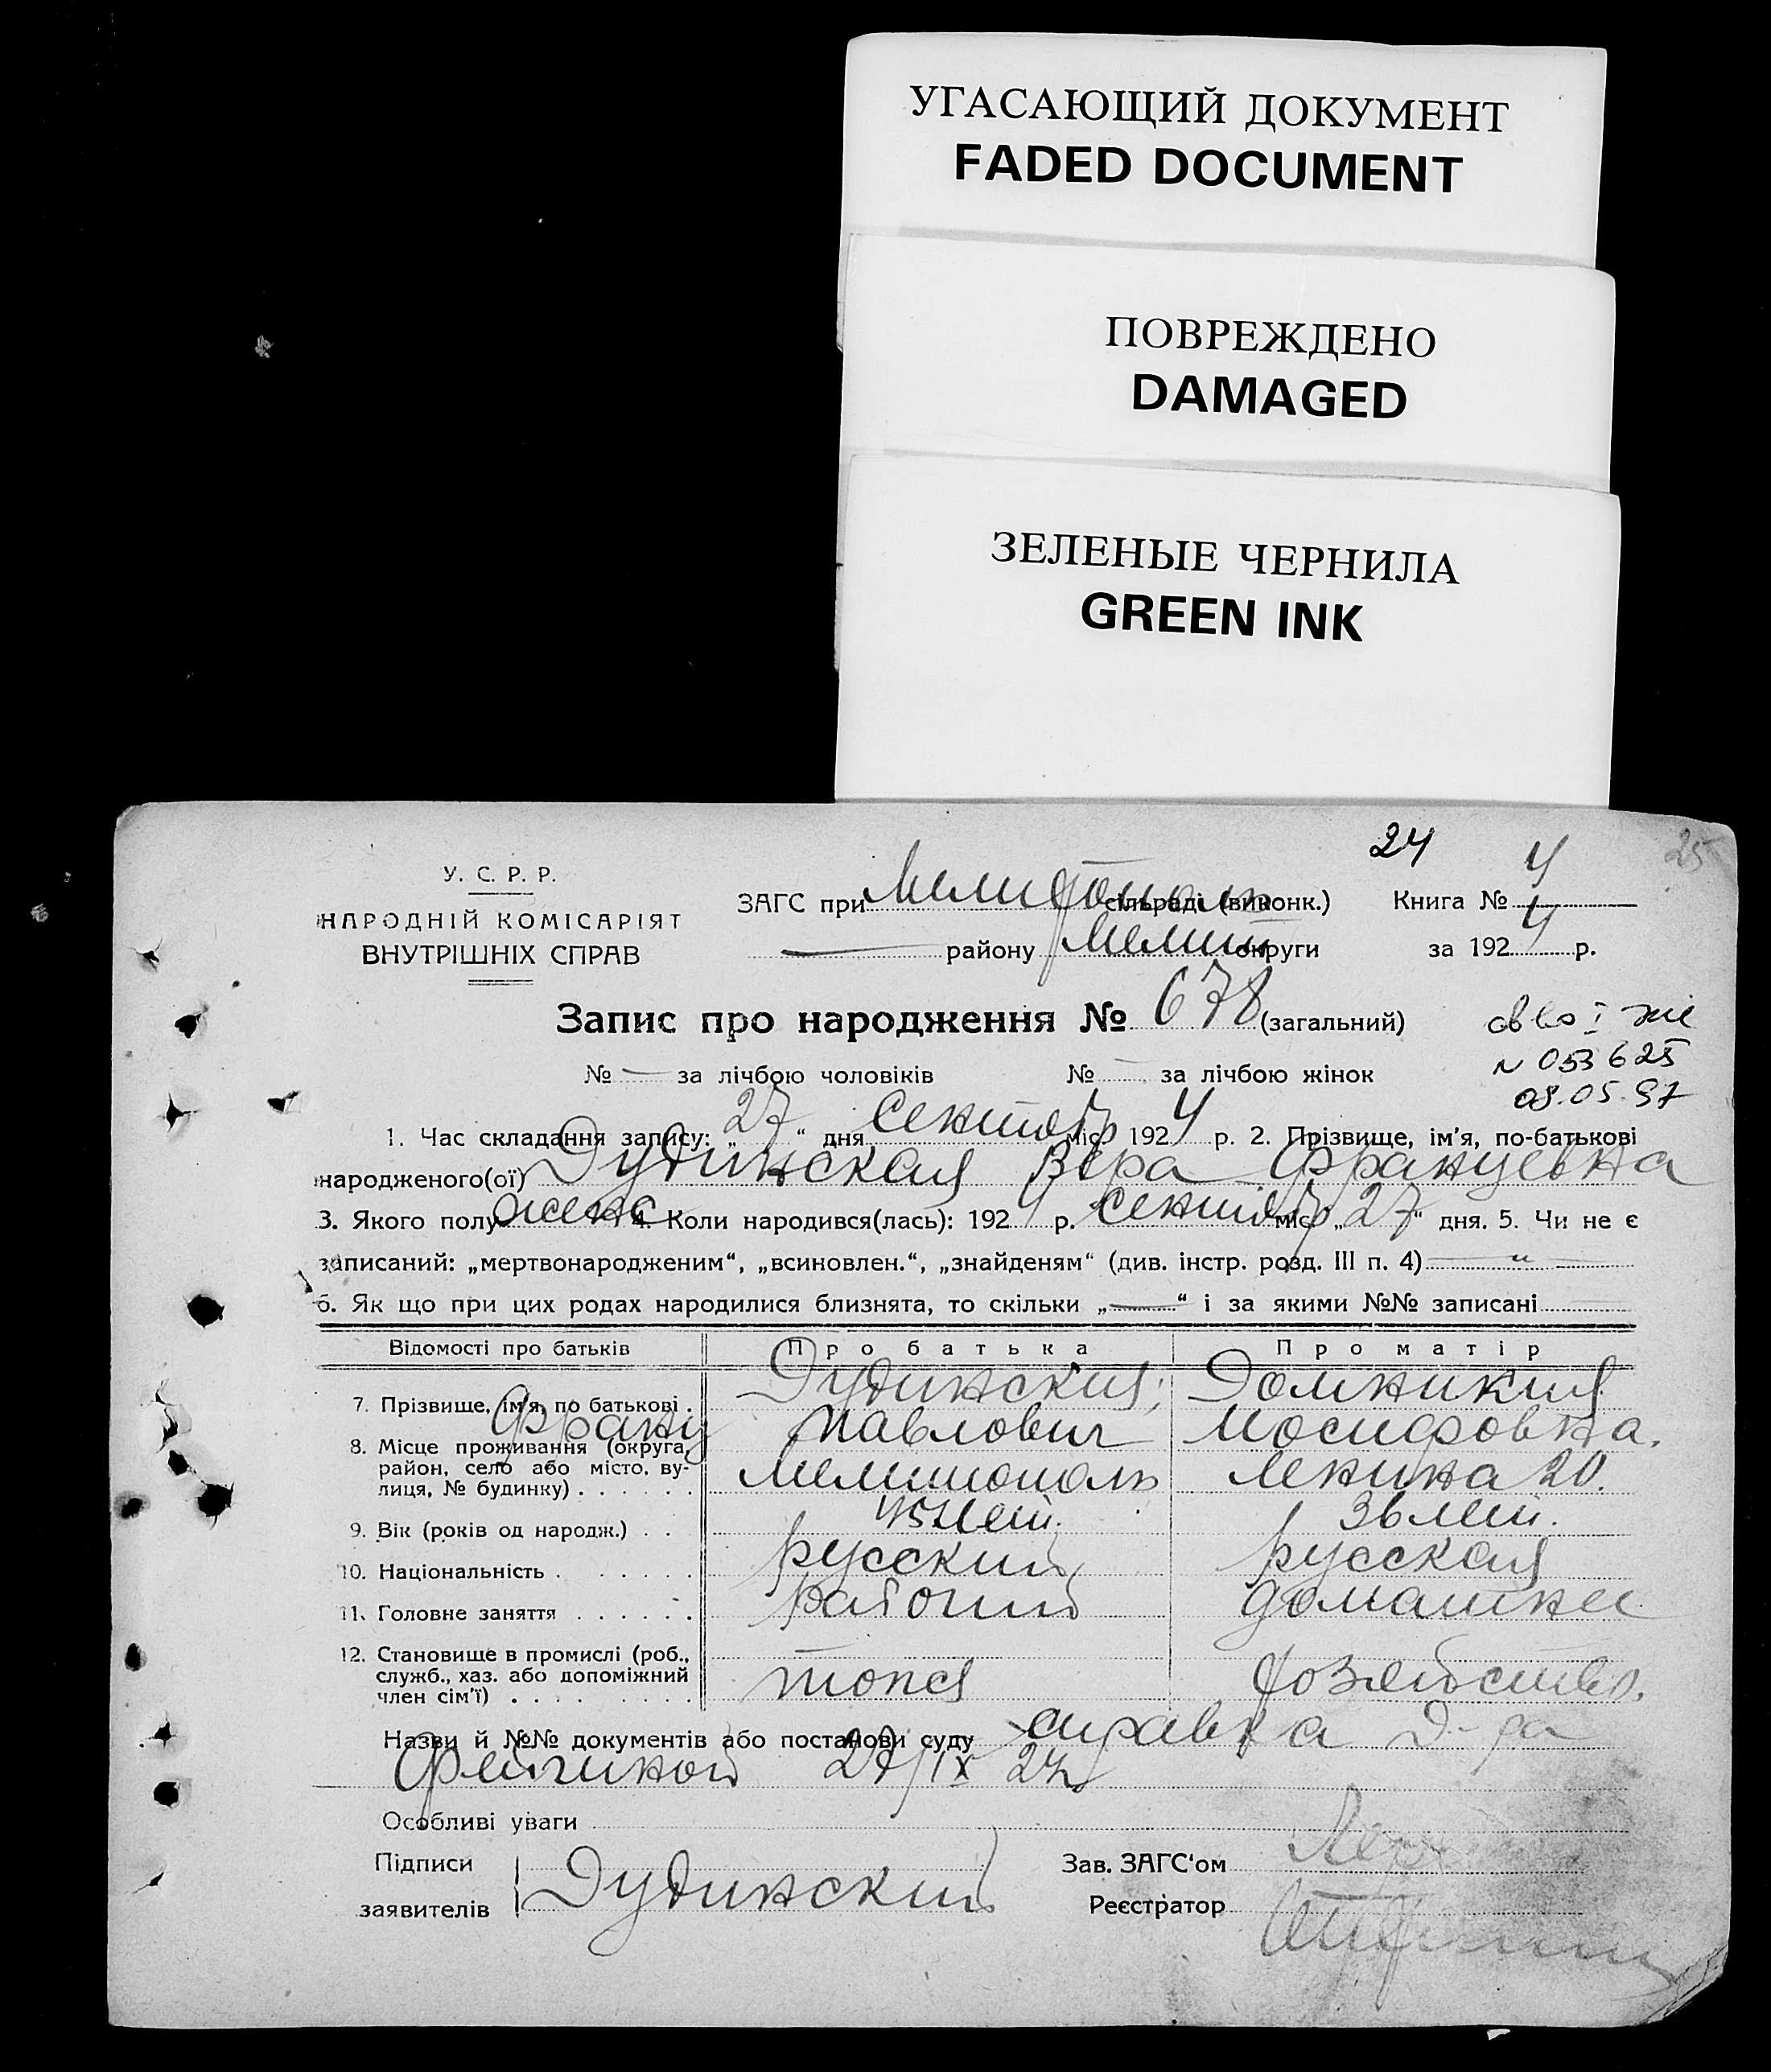 УГАСАЮЩИЙ ДОКУМЕНТ
FADED DOCUMENT
ПОВРЕЖДЕНО
DAMAGED
ЗЕЛЕНЫЕ ЧЕРНИЛА
GREEN INK
24 25
У. С. Р. Р.
НАРОДНІЙ КОМІСАРІЯТ
ВНУТРІШНІХ СПРАВ
ЗАГС при Мелитополь сільраді (виконк.) Книга № 4
— району Мелит округи за 1924 р.
Запис про народження № 678 (загальний)
№ — за лічбою чоловіків № — за лічбою жінок
№ 053625
08.05.97
1. Час складання запису: „27“ дня Сентябр міс. 1924 р. 2. Прізвище, ім'я, по-батькові
народженого(ої) Дудинская Вера Францевна
3. Якого полу женс 4. Коли народився(лась): 1924 р. Сентябр міс. „27“ дня. 5. Чи не є
записаний: „мертвонародженим“, „всиновлен.“, „знайденям“ (див. інстр. розд. III п. 4) — „ —
6. Як що при цих родах народилися близнята, то скільки „—“ і за якими №№ записані
Відомості про батьків Про батька Про матір
7. Прізвище, ім'я, по батькові . Франц Дудинский Павлович Домникия Иосифовна.
8. Місце проживання (округа, район, село або місто, вулиця, № будинку) . . . . . . Мелитополь Ленина 20.
9. Вік (років од народж.) . . 45 лет. 36 лет.
10. Національність . . . . . . русский русская
11. Головне заняття . . . . . . рабочий домашнее
12. Становище в промислі (роб., служб., хаз. або допоміжний член сім'ї) . . . . хозяйство.
Назви й №№ документів або постанови суду справка Д-ра
27/IX 24
Особливі уваги
Підписи
заявителів Дудинский
Зав. ЗАГС'ом
Реєстратор